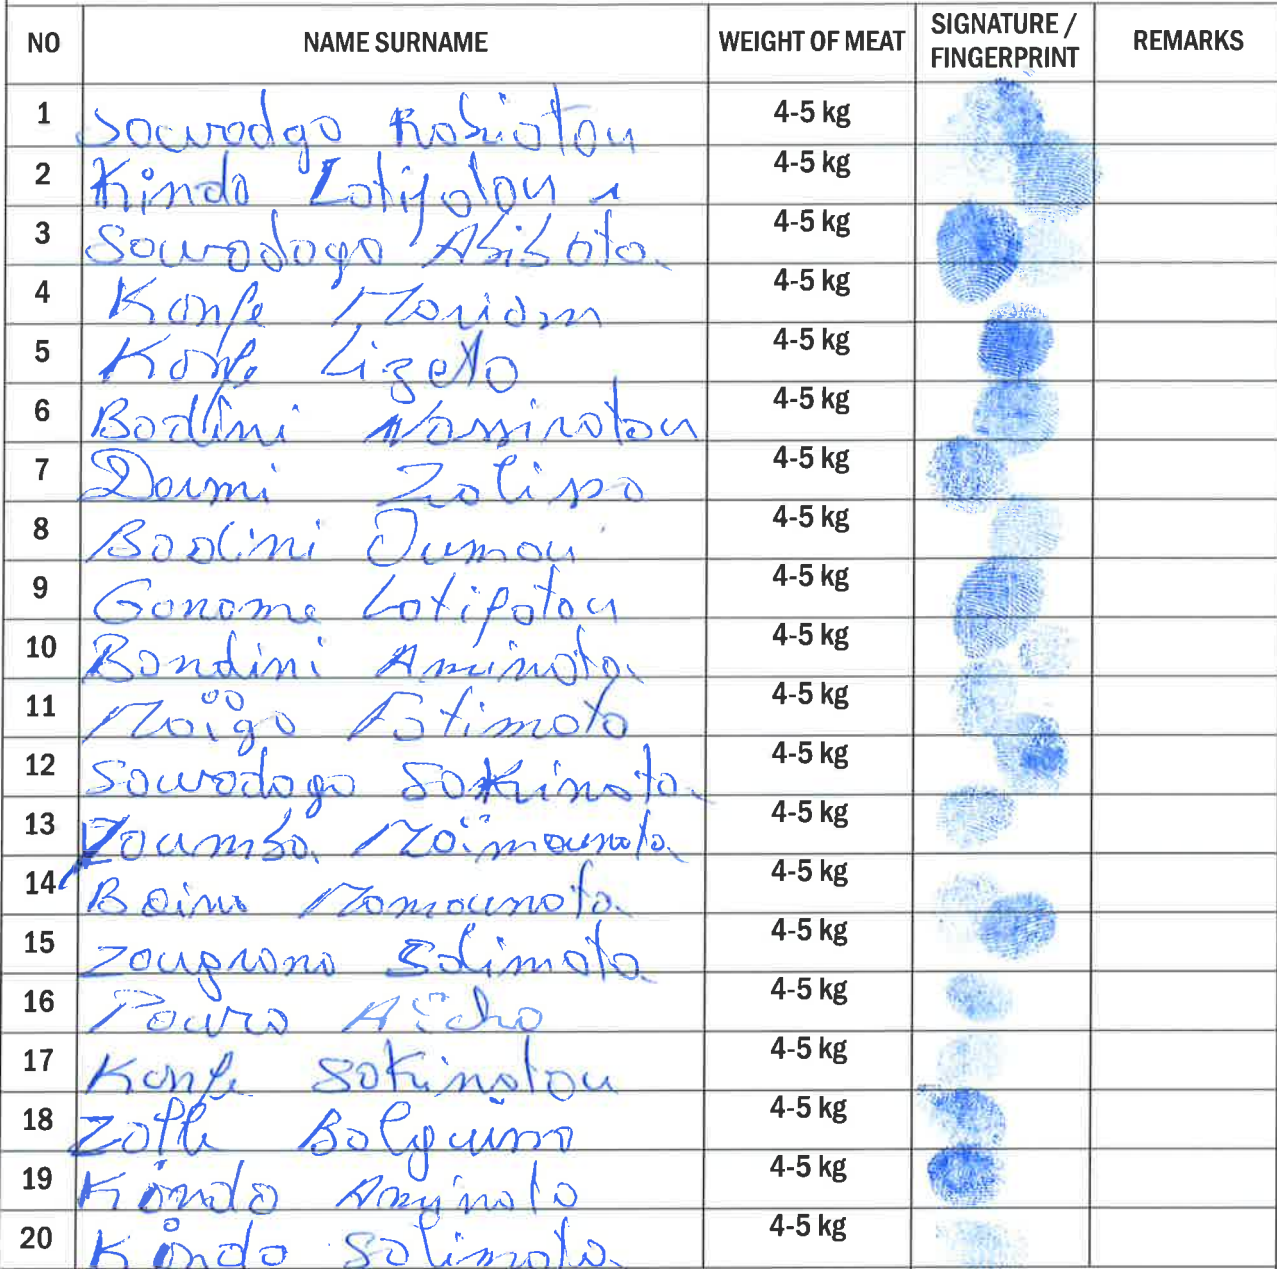 NO NAME SURNAME WEIGHT OF MEAT SIGNATURE / FINGERPRINT REMARKS
1 Sawodgo Rabiatou 4-5 kg
2 Kindo Latifatou 4-5 kg
3 Sawodogo Abibata 4-5 kg
4 Konfe Mariam 4-5 kg
5 Konfe Lizeta 4-5 kg
6 Badini Nassiratou 4-5 kg
7 Daimi Zalissa 4-5 kg
8 Badini Oumou 4-5 kg
9 Ganame Latifatou 4-5 kg
10 Bandini Aminata 4-5 kg
11 Maïga Fatimata 4-5 kg
12 Sawodogo Sakinata 4-5 kg
13 Zoumba Maïmounata 4-5 kg
14 Mamounata 4-5 kg
15 Zougrana Salimata 4-5 kg
16 Aïcha 4-5 kg
17 Konfe Sakinatou 4-5 kg
18 4-5 kg
19 Kindo Aminata 4-5 kg
20 Kindo Salimata 4-5 kg